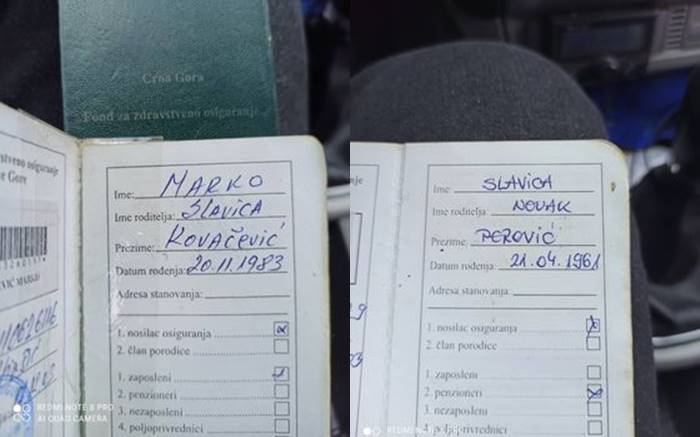 Crna Gora
Fond za zdravstveno osiguranje
Ime: MARKO
Ime roditelja: SLAVICA
Prezime: KOVAČEVIĆ
Datum rođenja: 20.11.1983
Adresa stanovanja:
1. nosilac osiguranja
2. član porodice
1. zaposleni
2. penzioneri
3. nezaposleni
4. poljoprivrednici
REDMI NOTE 8 PRO
AI QUAD CAMERA
Ime: SLAVICA
Ime roditelja: NOVAK
Prezime: PEROVIĆ
Datum rođenja: 21.04.1961
Adresa stanovanja:
1. nosilac osiguranja
2. član porodice
1. zaposleni
2. penzioneri
3. nezaposleni
4. poljoprivrednici
REDMI NOTE 8 PRO
AI QUAD CAMERA